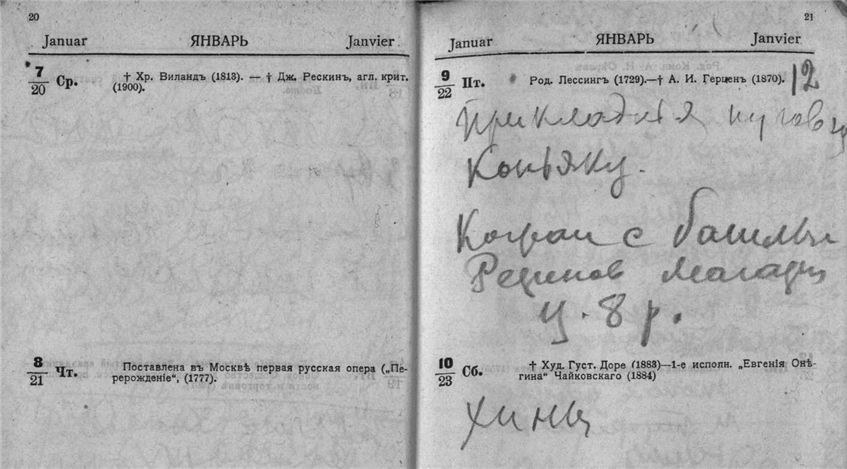 20
Januar ЯНВАРЬ Janvier
7/20 Ср. † Хр. Виландъ (1813). — † Дж. Рескинъ, агл. крит.
(1900).
8/21 Чт. Поставлена въ Москвѣ первая русская опера („Пе-
рерожденіе“, (1777).
21
Januar ЯНВАРЬ Janvier
9/22 Пт. Род. Лессингъ (1729).—† А. И. Герценъ (1870). 12
Коньяку.
с
Магазин
ц. 8 р.
10/23 Сб. † Худ. Густ. Доре (1883)—1-е исполн. „Евгенія Онѣ-
гина“ Чайковскаго (1884)